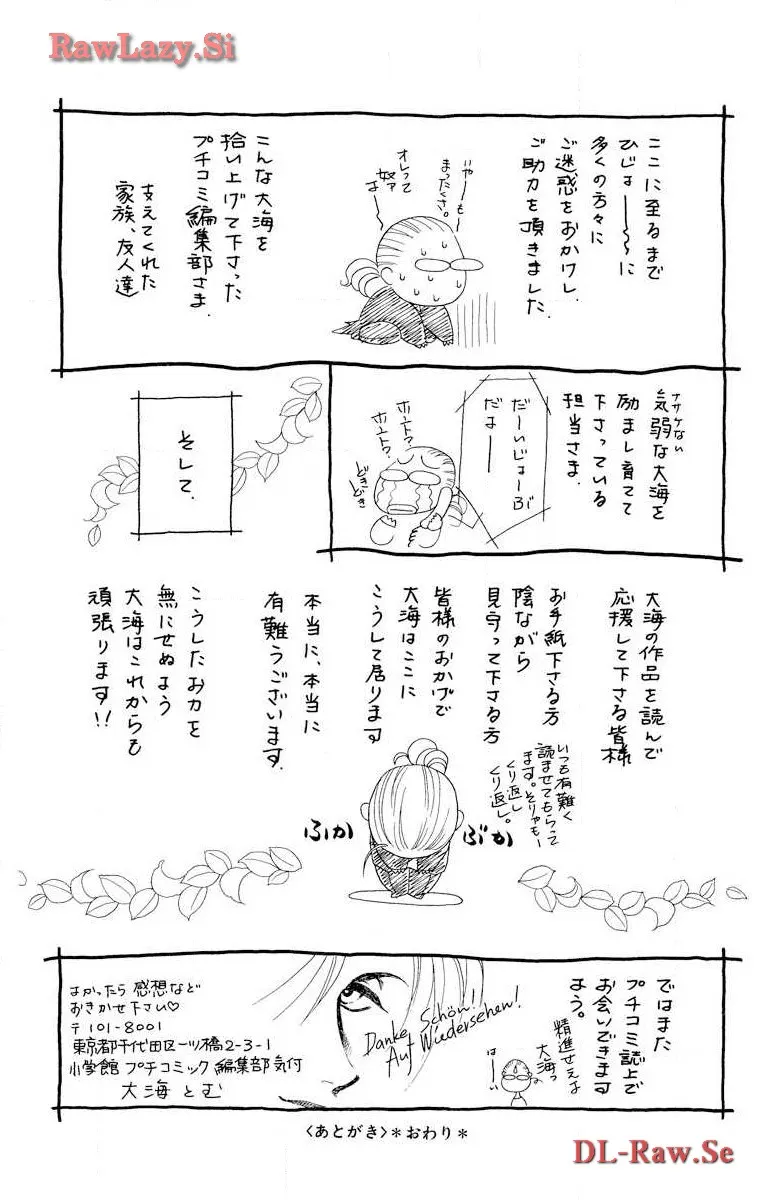 RawLazy.Si
ここに至るまで
ひじょーーーに
多くの方々に
ご迷惑をおかけし、
ご助力を頂きました。
いやーも
まったくさ。
オレって
奴は
こんな大海を
拾い上げて下さった
プチコミ編集部さま。
支えてくれた
家族、友人達
ナサケない
気弱な大海を
励まし育てて
下さっている
担当さま。
だーいじょーぶ
だよーー
ホント?
ホント?
どきどき
そして、
大海の作品を読んで
応援して下さる皆様
お手紙下さる方
陰ながら
見守って下さる方
いつも有難く
読ませてもらって
ます。そりゃもー
くり返し
くり返し。
皆様のおかげで
大海はここに
こうして居ります
本当に、本当に
有難うございます。
こうしたお力を
無にせぬよう
大海はこれからも
頑張ります!!
ふか
ぶか
ではまた
プチコミ誌上で
お会いできます
よう。
精進せえよ
大海っ
はーい
Danke Schön!
Auf Wiedersehen!
よかったら 感想など
おきかせ下さい♡
〒101-8001
東京都千代田区一ツ橋2-3-1
小学館 プチコミック 編集部 気付
大海とむ
〈あとがき〉*おわり*
DL-Raw.Se